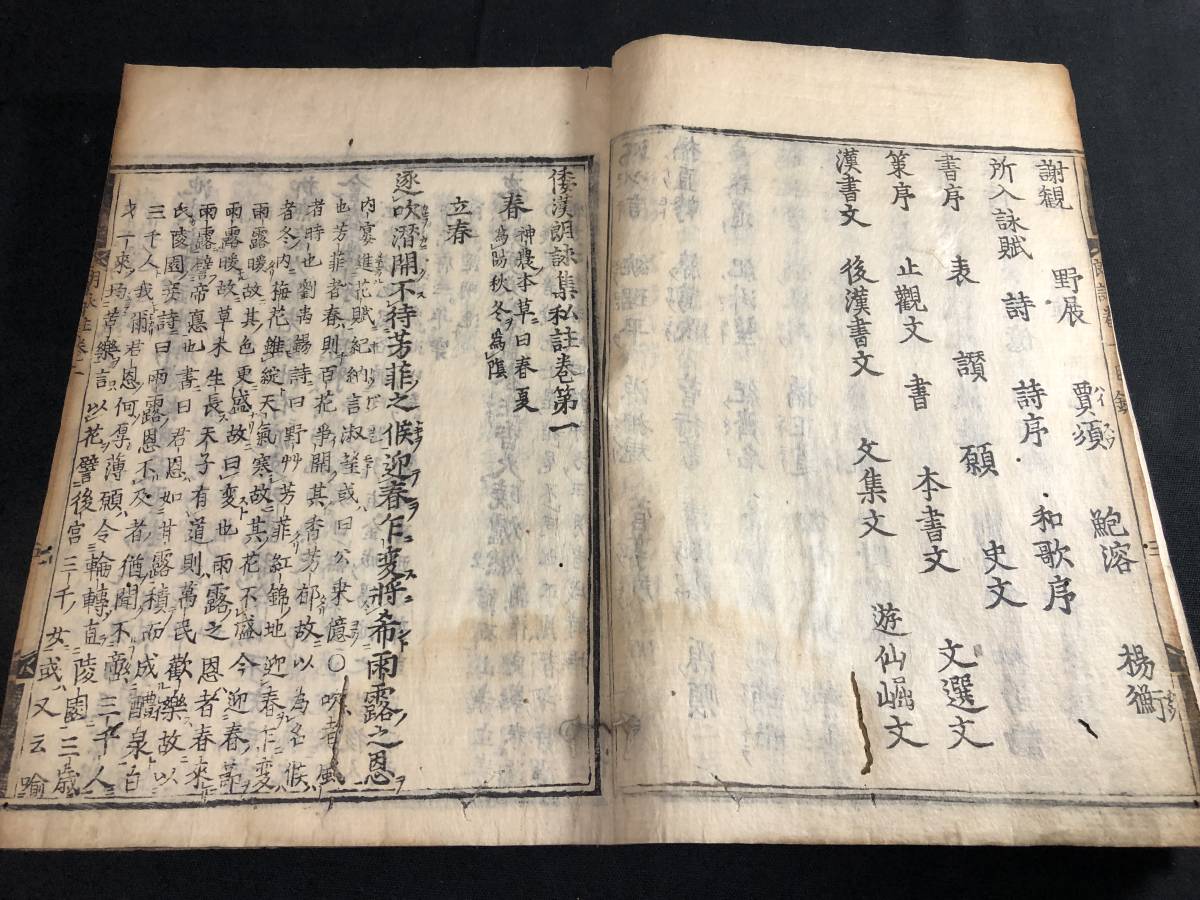 謝観 野展 賈須 鮑溶 楊衡
所入詠賦 詩 詩序 和歌序
書序 表 讃 願 史文
策序 止觀文 書 本書文 文選文
漢書文 後漢書文 文集文 遊仙崛文
倭漢朗詠集私註巻第一
春 神農本草曰春夏為陽秋冬為陰
立春
逐吹潜開不待芳菲之候迎春乍変将希雨露之恩
内宴進花賦紀納言淑望或曰公乗億〇吹者風
也芳菲者春則百花爭開其香芳郁故以為名候
者時也劉禹錫詩曰野艸芳菲紅錦地迎春乍変
者冬内梅花雖綻天氣寒故其花不盛今迎春節
雨露暖故其色更盛故曰変也雨露之恩者春來
雨露暖故草木生長天子有道則萬民歡樂故以
雨露譬帝悳也書曰君恩如甘露積而成醴泉百
氏陵園妾詩曰雨露恩不及者猶聞不啻三千人
三千人我爾君恩何厚薄願令輪轉直陵園三歳
一來均苦樂言以花譬後宮三千女或又云喻